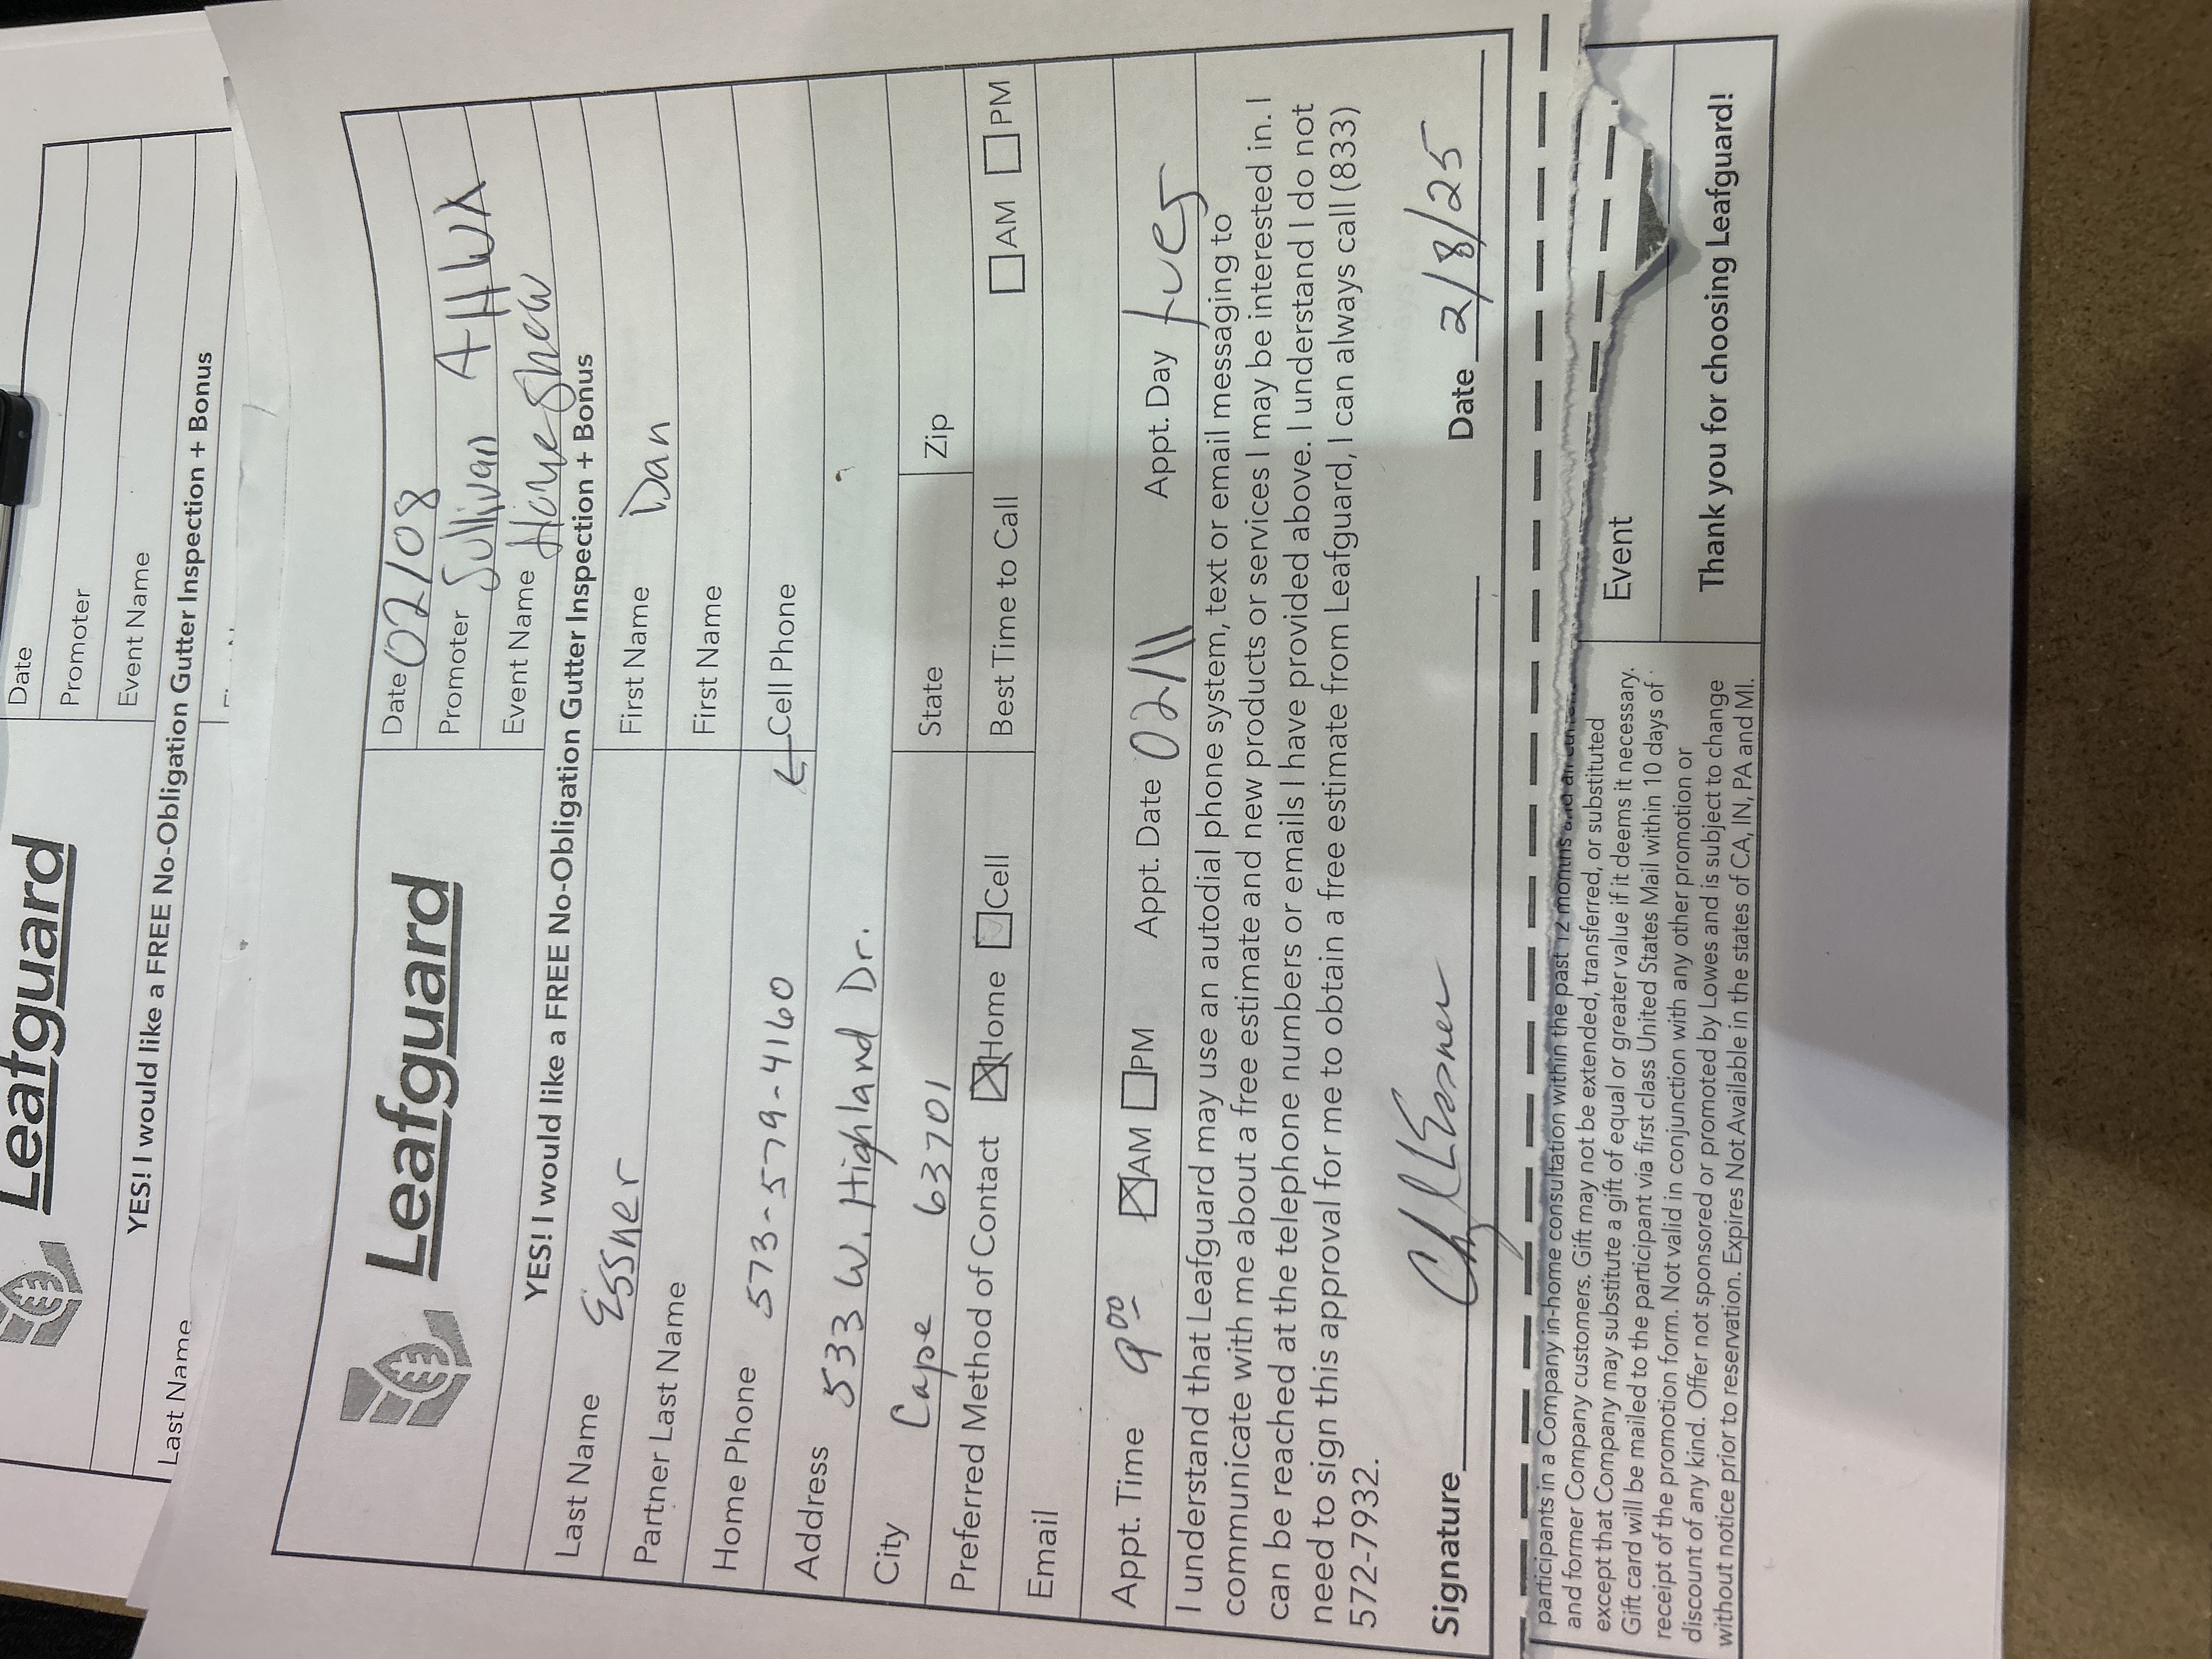 Leafguard
Date
Promoter
Event Name
YES! I would like a FREE No-Obligation Gutter Inspection + Bonus
Last Name
Leafguard
Date 02/08
Promoter Sullivan AHWX
Event Name Home Show
YES! I would like a FREE No-Obligation Gutter Inspection + Bonus
Last Name Essner First Name Dan
Partner Last Name First Name
Home Phone 573-579-4160 ← Cell Phone
Address 533 W. Highland Dr.
City Cape 63701 State Zip
Preferred Method of Contact Home Cell Best Time to Call AM PM
Email
Appt. Time 9:00 AM PM Appt. Date 02/11 Appt. Day tues
I understand that Leafguard may use an autodial phone system, text or email messaging to
communicate with me about a free estimate and new products or services I may be interested in. I
can be reached at the telephone numbers or emails I have provided above. I understand I do not
need to sign this approval for me to obtain a free estimate from Leafguard, I can always call (833)
572-7932.
Signature Essner Date 2/8/25
participants in a Company in-home consultation within the past 12 months and all current
and former Company customers. Gift may not be extended, transferred, or substituted
except that Company may substitute a gift of equal or greater value if it deems it necessary.
Gift card will be mailed to the participant via first class United States Mail within 10 days of
receipt of the promotion form. Not valid in conjunction with any other promotion or
discount of any kind. Offer not sponsored or promoted by Lowes and is subject to change
without notice prior to reservation. Expires Not Available in the states of CA, IN, PA and MI.
Event
Thank you for choosing Leafguard!